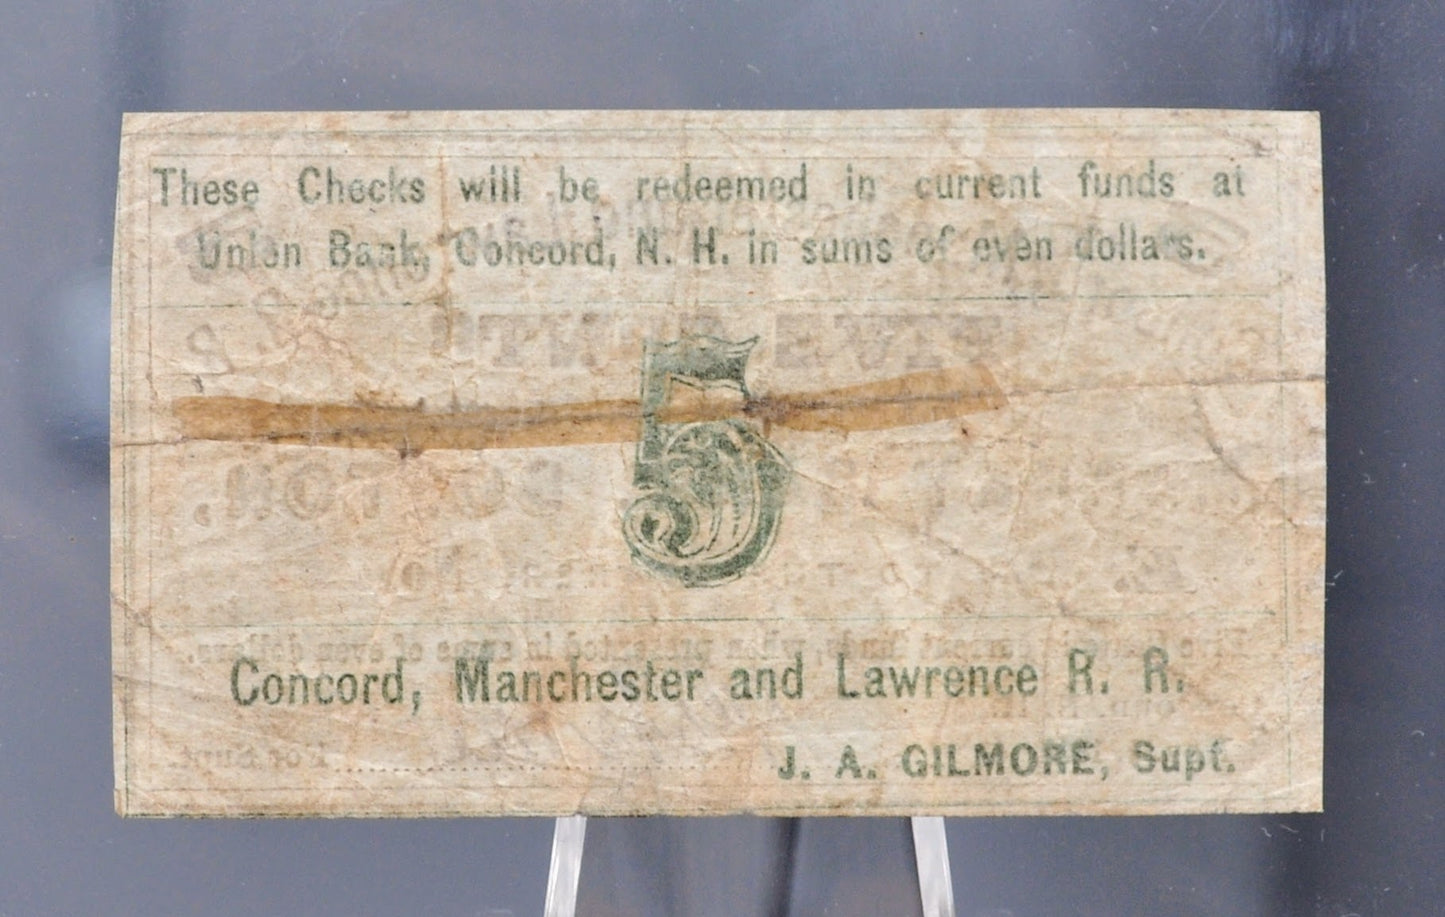 These Checks will be redeemed in current funds at
Union Bank, Concord, N. H. in sums of even dollars.
5
Concord, Manchester and Lawrence R. R.
J. A. GILMORE, Supt.